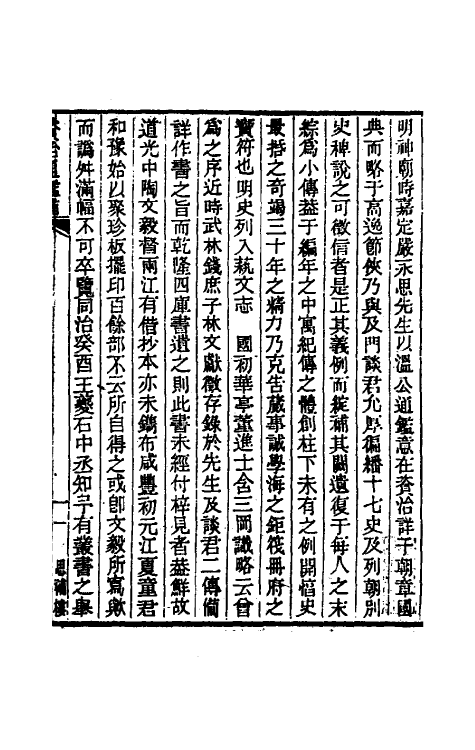 明神廟時嘉定嚴永思先生以溫公通鑑意在資治詳于朝章國
典而略于高逸節俠乃與及門談君允厚徧繙十七史及列朝別
史稗說之可徵信者是正其義例而綻補其闕遺復于每人之末
綜為小傳益于編年之中寓紀傳之體創柱下未有之例開愊史
最揩之奇竭三十年之精力乃克告蕆事誠學海之鉅筏冊府之
寶符也明史列入藝文志　國初華亭董進士含三岡識略云曾
為之序近時武林錢庶子林文獻徵存錄於先生及談君二傳僃
詳作書之旨而乾隆四庫書遺之則此書未經付梓見者益鮮故
道光中陶文毅督兩江有借抄本亦未鐫布咸豐初元江夏童君
和豫始以聚珍板擺印百餘部不云所自得之或卽文毅所寫歟
而譌舛滿幅不可卒覽同治癸酉王夔石中丞知予有叢書之舉
資治通鑑補
一
思補樓